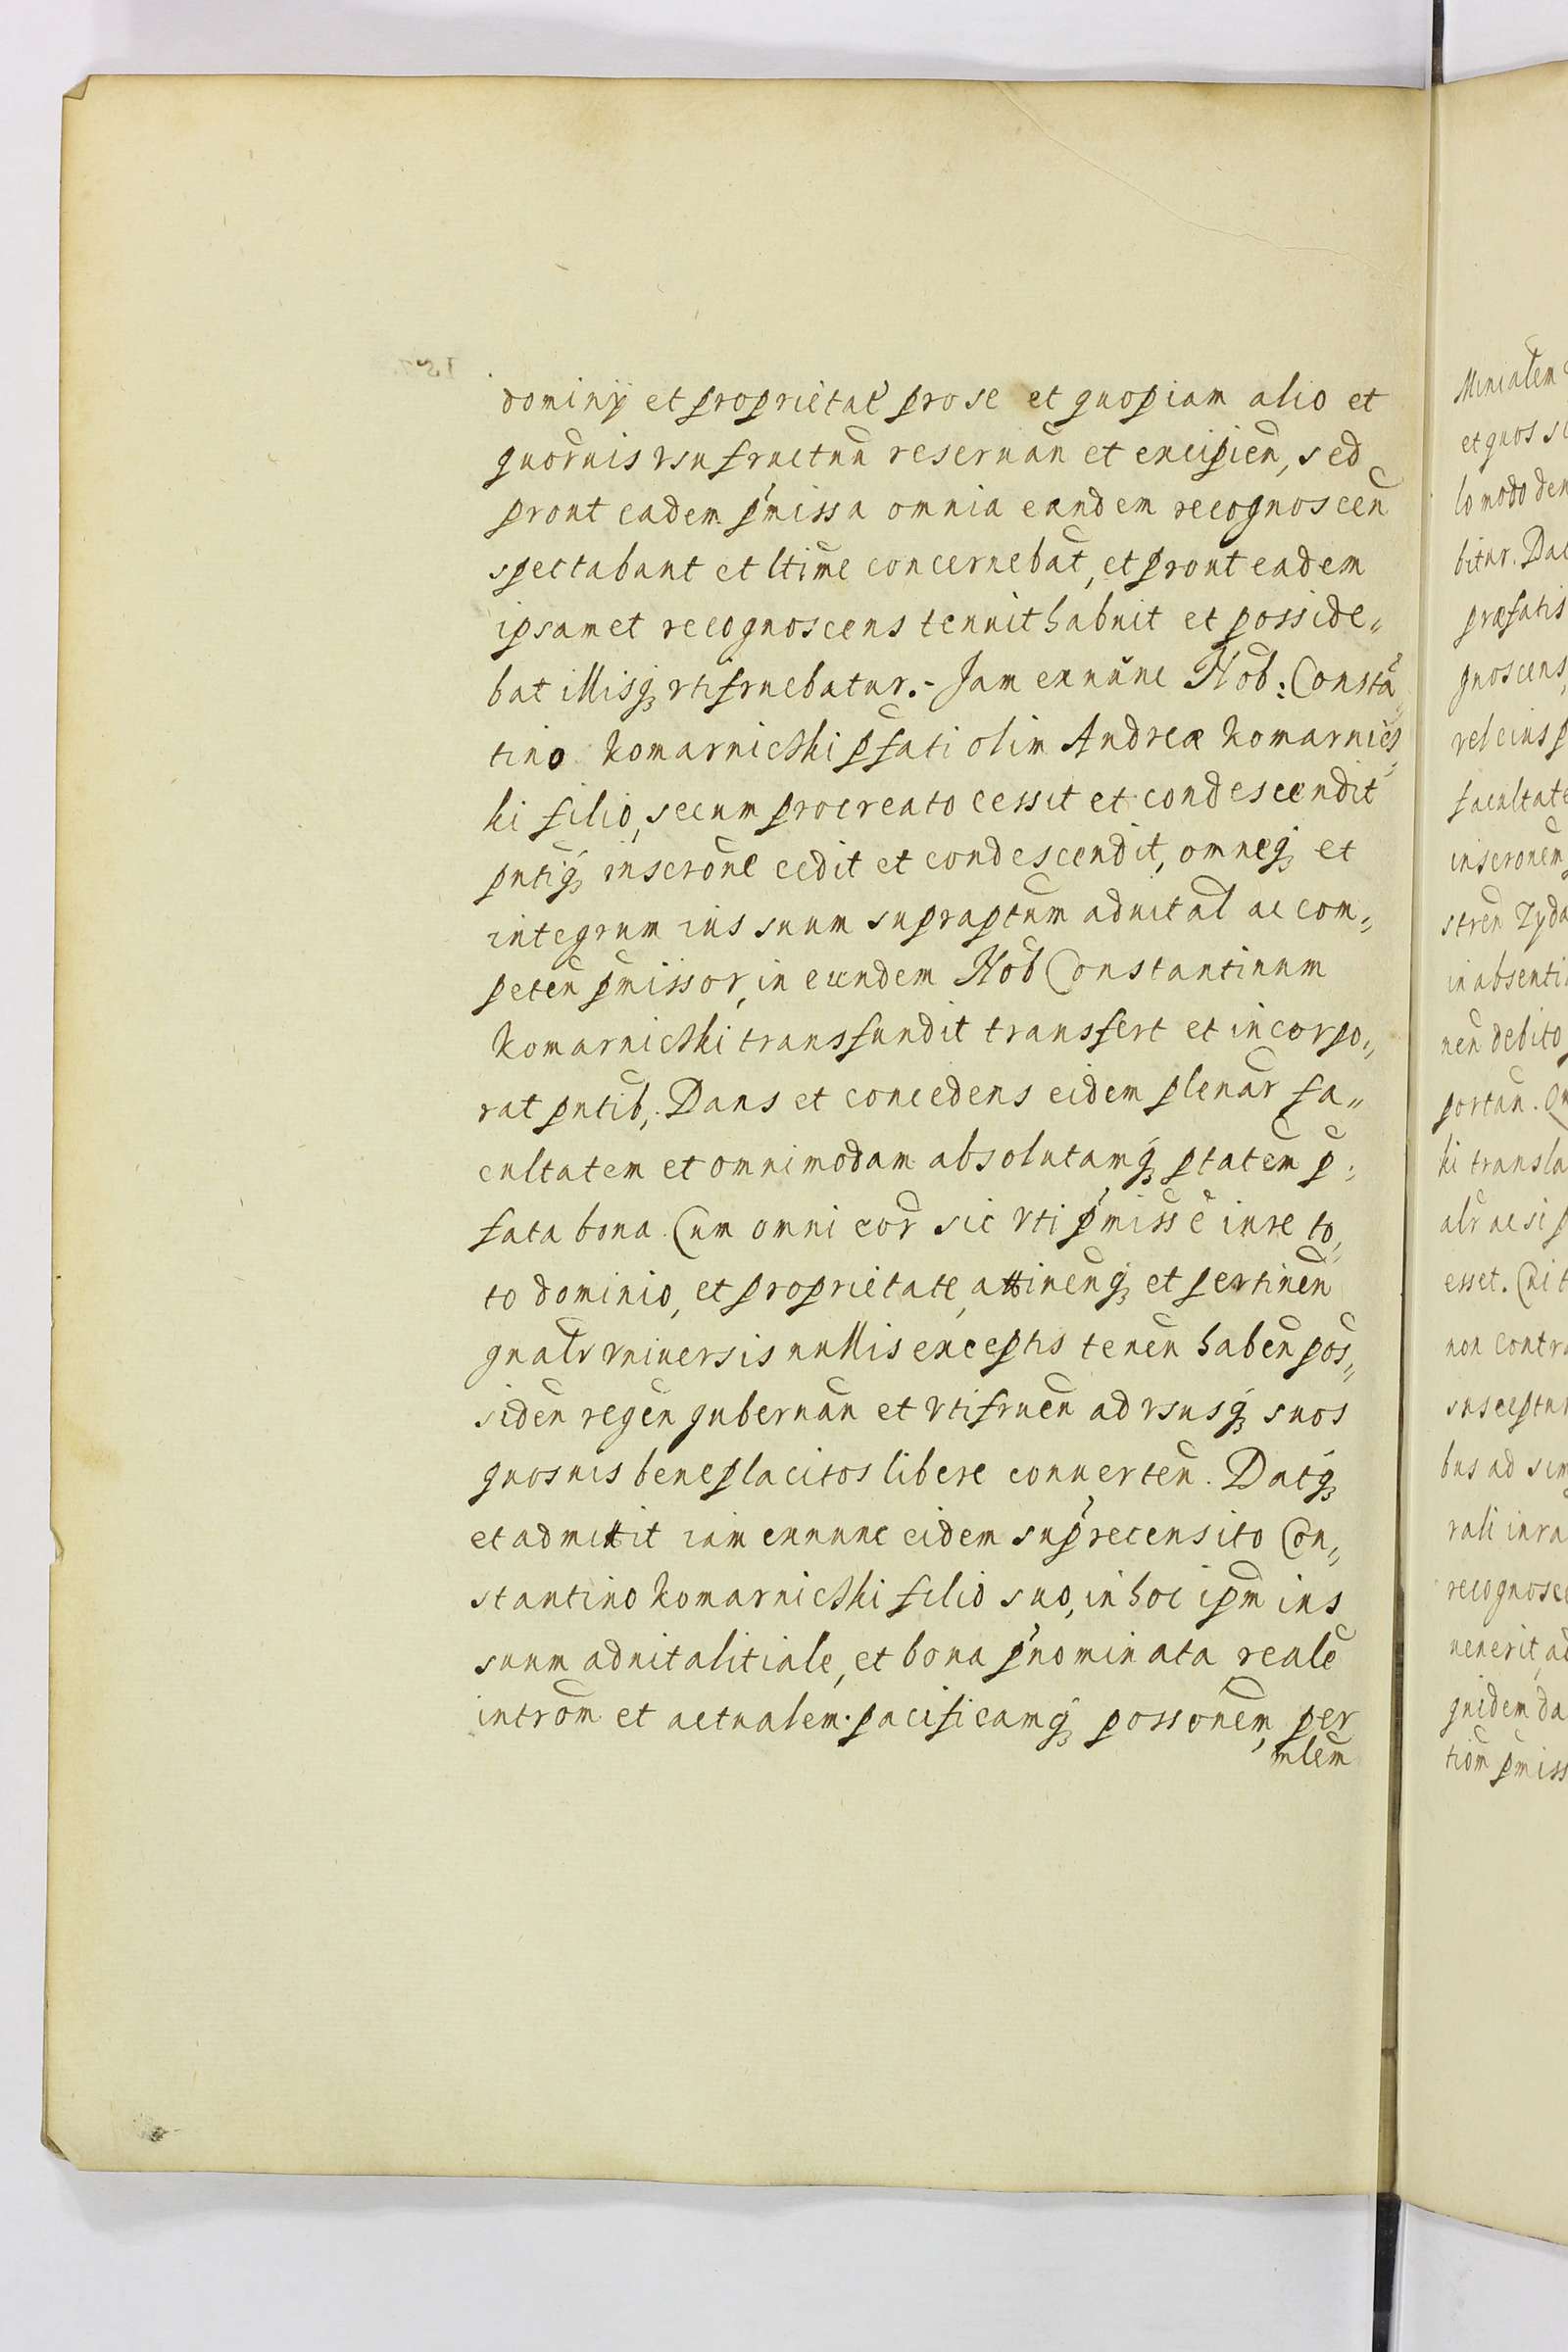 dominÿ et proprietat̃ pro se et quopiam alio et
quoruis vsufructuũ reseruañ et excipień, sed
prout eadem p̃missa omnia eandem recognosceñ
spectabant et ltiṁe concernebat̃, et prout eadem
ipsamet recognoscens tenuit habuit et posside„
bat illisq̃ vtifruebatur.- Jam exnunc Nob: Constã„
tino Komarnickhi p̃fati olim Andreæ Komarnick„
hi filio, secum procreato cessit et condescendit
pñtiq̃ inscrõne cedit et condescendit, omneq̃ et
integrum ius suum supraptũm aduitał ac com„
peteñ p̃missor̃, in eundem Nob̃ Constantinum
Komarnickhi transfundit transfert et incorpo„
rat pñtib; Dans et concedens eidem plenar̃ fa„
cultatem et omnimodam absolutamq̃ ptat̃em p̃„
fata bona Cum omni eor̃ sic vti p̃miss̃ẽ iure to„
to dominio, et proprietate, attineñq̃ et pertineñ
gnalr̃ vniversis nullis exceptis teneñ habeñ pos„
sideñ regeñ gubernañ et vtifrueñ ad vsusq̃ suos
quosuis beneplacitos libere conuerteñ. Datq̃
et admittit iam exnunc eidem sup̃recensito Con„
stantino Komarnickhi filio suo, in hoc ipm̃ ius
suum aduitalitiale, et bona p̃nominata, realẽ
introm̃ et actualem pacificamq̃ possoñem, per
mlem̃
Minialem̃
et quos s
lo modo de
bitur. Da
præfatis
gnoscens,
vel eius p
facultat
inscronem
streñ Zyda
in absenti
neñ debito
portañ. Q
hi transla
alr̃ ac si p
esset. Cui t
non contra
susceptu
bus ad sim
rali iura
recognosc
uenerit, ad
quidem da
tiõm p̃miss